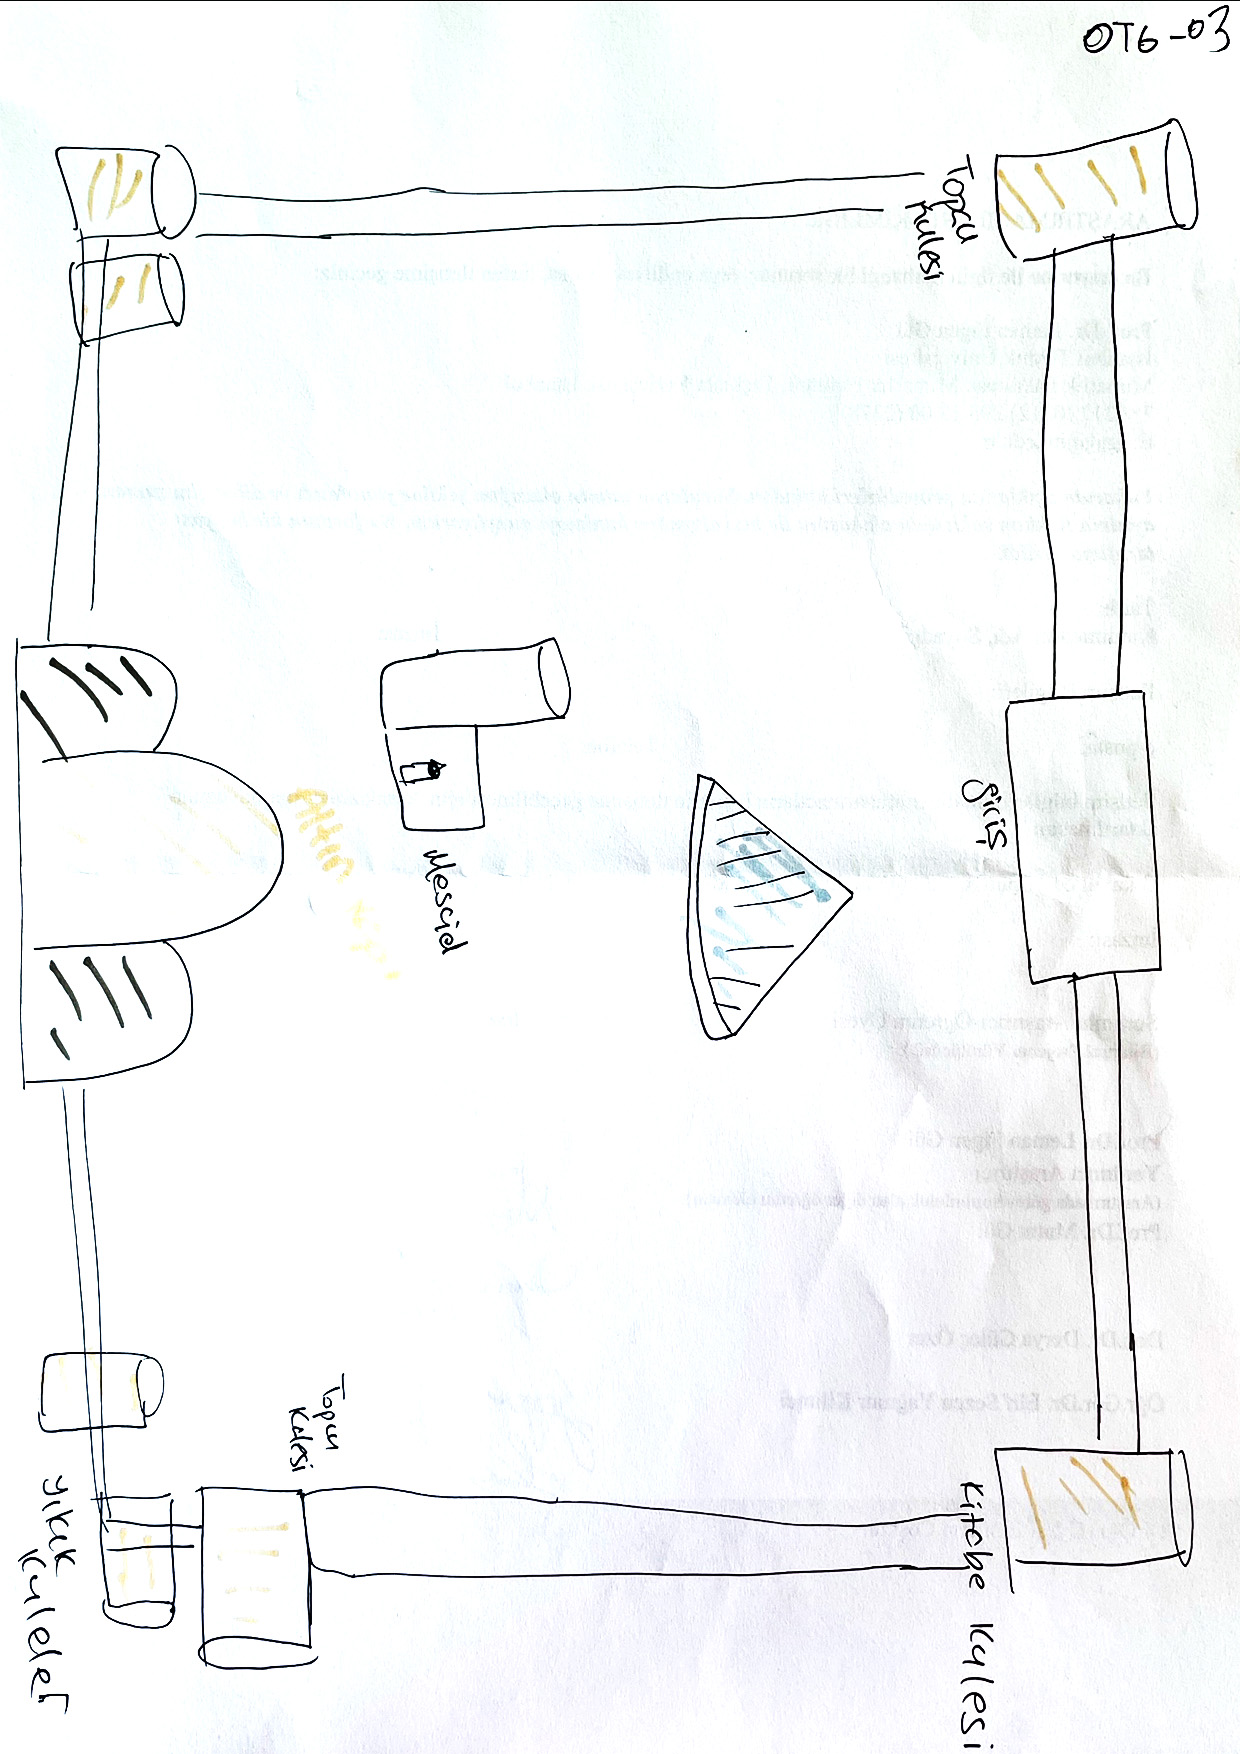 OT6-03
Topcu
Kulesi
giriş
Kitabe Kulesi
Mescid
Altın
Topcu
Kalesi
Yıkık
Kuleler